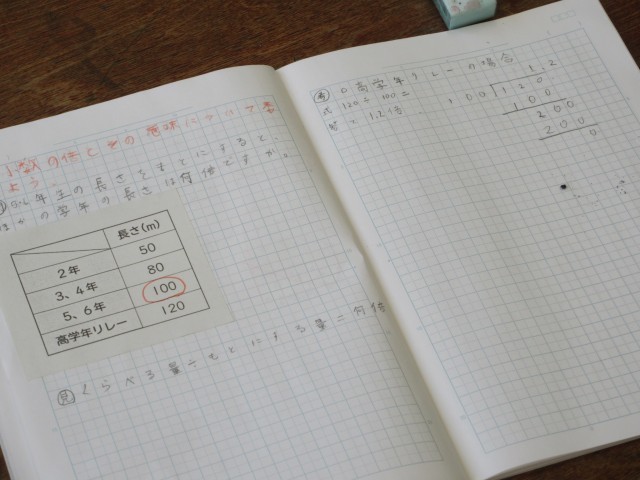 小数の倍とその意味について考
よう。
5、6年生の長さをもとにすると、
ほかの学年の長さは何倍ですか。
長さ(m)
2年 50
3、4年 80
5、6年 100
高学年リレー 120
見 くらべる量÷もとにする量=何倍
考 高学年リレーの場合
式 120÷100=
答え 1.2倍
1.2
100)120
100
200
200
0